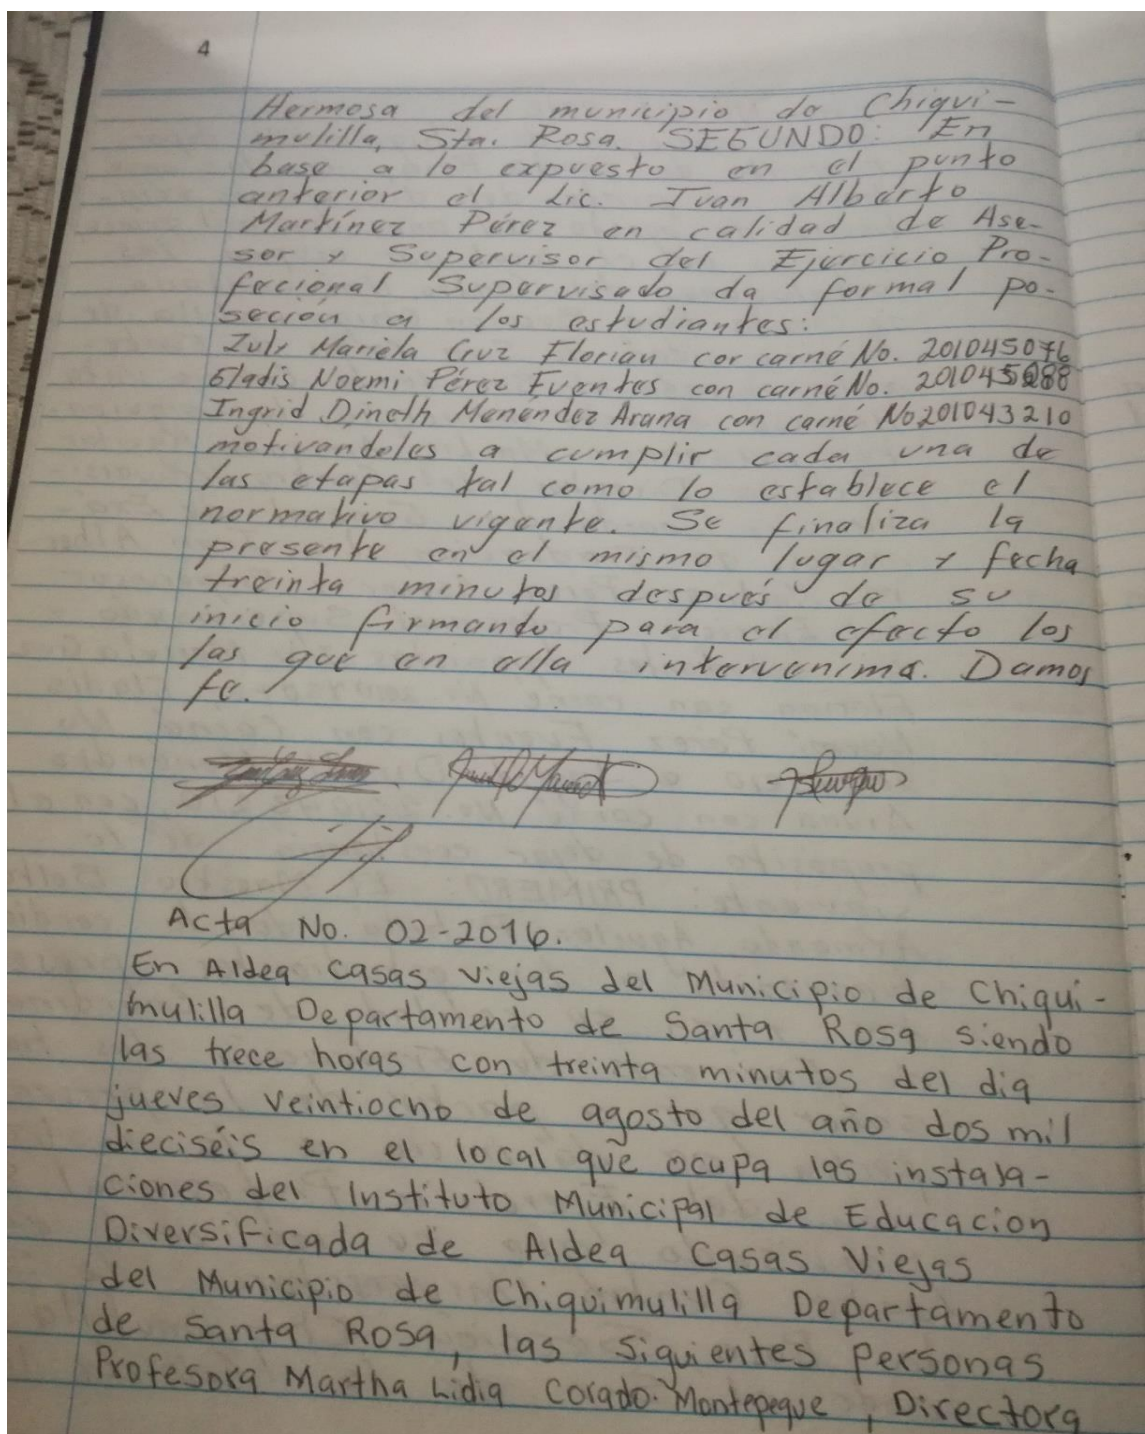 4
Hermosa del municipio de Chiqui-
mulilla, Sta. Rosa. SEGUNDO: En
base a lo expuesto en el punto
anterior el Lic. Ivan Alberto
Martínez Pérez en calidad de Ase-
sor y Supervisor del Ejercicio Pro-
fecional Supervisado da formal po-
seción a los estudiantes:
Zuly Mariela Cruz Florian con carné No. 201045076
Gladis Noemi Pérez Fuentes con carné No.
Ingrid Dineth Menéndez Arana con carné No 201043210
motivandoles a cumplir cada una de
las etapas tal como lo establece el
normativo vigente. Se finaliza la
presente en el mismo lugar y fecha
treinta minutos después de su
inicio firmando para el efecto los
las que en ella intervenima. Damos
fe.
Acta No. 02-2016.
En Aldea Casas Viejas del Municipio de Chiqui-
mulilla Departamento de Santa Rosa siendo
las trece horas con treinta minutos del dia
jueves veintiocho de agosto del año dos mil
dieciséis en el local que ocupa las instala-
ciones del Instituto Municipal de Educacion
Diversificada de Aldea Casas Viejas
del Municipio de Chiquimulilla Departamento
de Santa Rosa, las siguientes personas
Profesora Martha Lidia Corado Montepeque, Directora